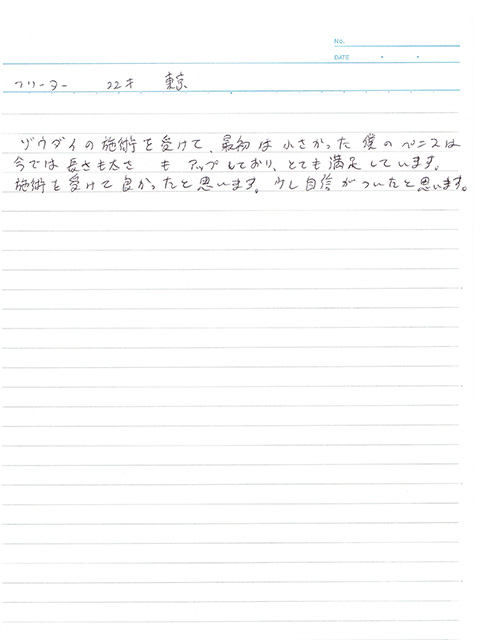 No.
DATE ・ ・
フリーター 22才 東京
ゾウダイの施術を受けて、最初は小さかった僕のペニスは
今では長さも太さ も アップしており、とても満足しています。
施術を受けて良かったと思います。少し自信がついたと思います。